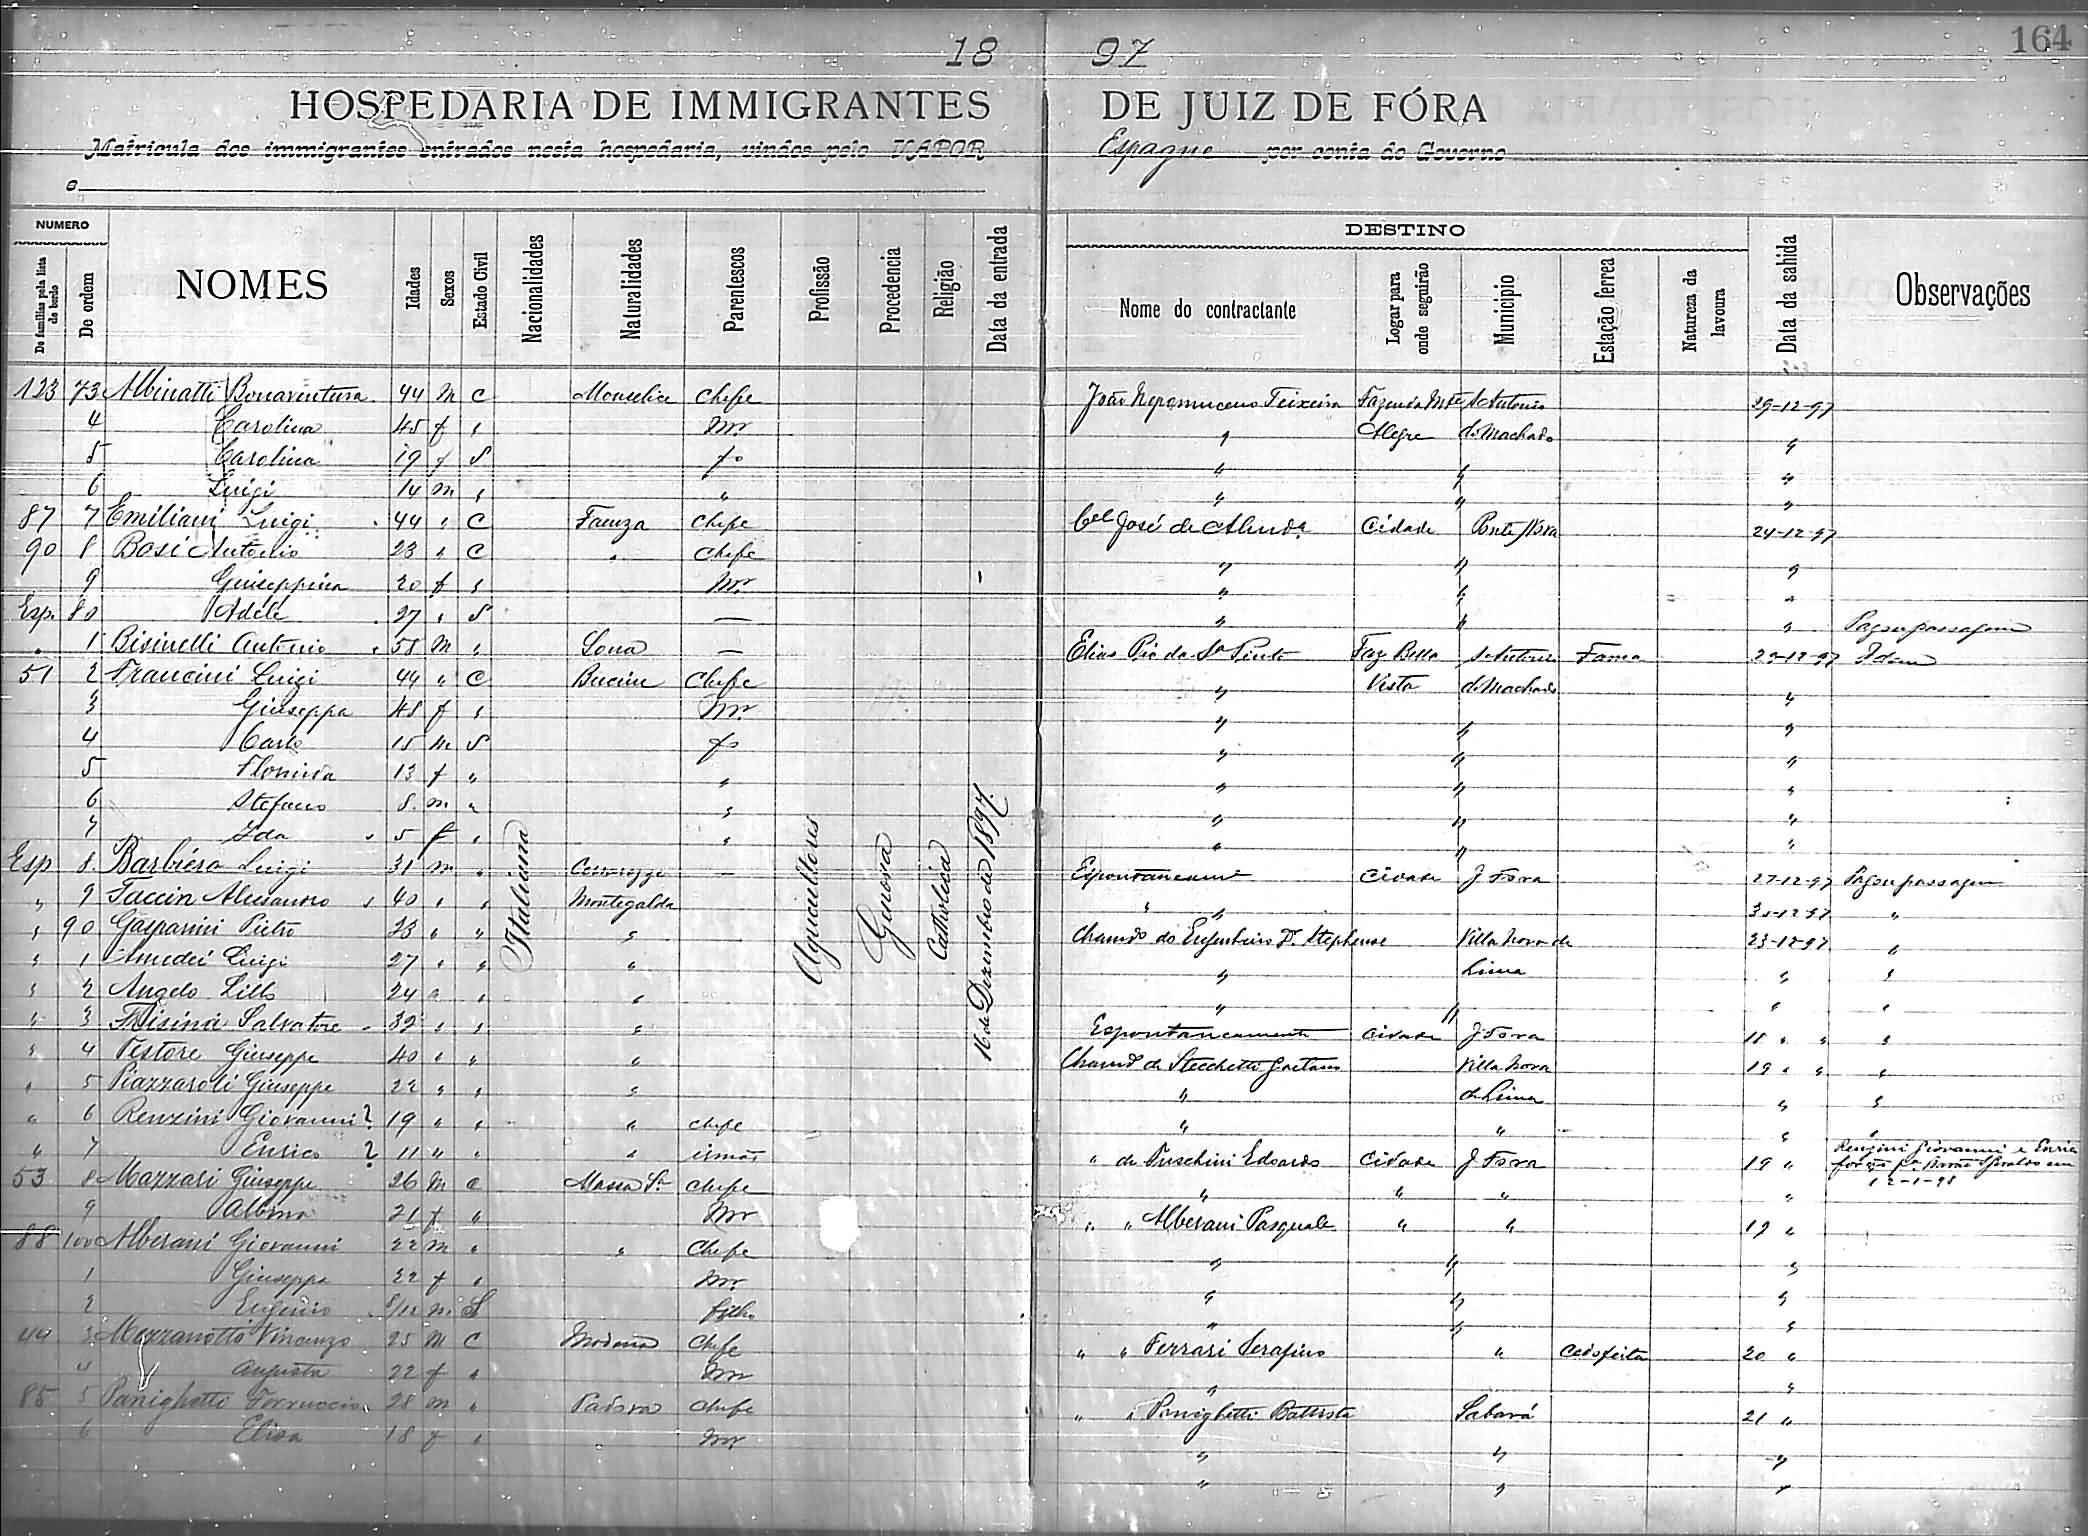 164
18 97
HOSPEDARIA DE IMMIGRANTES DE JUIZ DE FÓRA
Matricula dos immigrantes entrados nesta hospedaria, vindos pelo VAPOR Espagne por conta do Governo
e
NUMERO DESTINO
De familias pela lista de bordo De ordem NOMES Idades Sexos Estado Civil Nacionalidades Naturalidades Parentescos Profissão Procedencia Religião Data da entrada Nome do contractante Logar para onde seguirão Municipio Estação ferrea Natureza da lavoura Data da sahida Observações
123 73 Albinatti Bonaventura 44 m C Monselice Chefe João Nepomuceno Teixeira Fazenda Mte S Antonio 29-12-97
4 Carolina 45 f " Mr " Alegre do Machado "
5 Carolina 19 f S fa " " "
6 Luigi 14 m " " " " "
87 7 Emiliani Luigi 44 " C Faenza Chefe Cel José de Almda Cidade Ponte Nova 24-12-97
90 8 Bosi Antonio 23 " C " Chefe " " "
9 Giuseppina 20 f " Mr " " "
Esp. 80 Adele 27 " S — " " " Pagou passagem
" 1 Bisinelli Antonio 55 m " Sona — Elias Pio da Sa Pinto Faz Bella S Antonio Fama 29-12-97 Idem
51 2 Francini Luigi 44 " C Bucine Chefe " Vista do Machado "
3 Giuseppa 48 f " Mr " " "
4 Carlo 15 m S fo " " "
5 13 f " " " " "
6 Stefano 8 m " " " " "
7 Ida 5 f " " " " "
Esp 8 Barbiéra Luigi 31 m " — Espontaneamte Cidade J Fora 27-12-97 Pagou passagem
" 9 Taccin Alessandro 40 " " Montegalda " " 30-12-97 "
" 90 Gasparini Pietro 23 " " " Chamdo do Engenheiro Dr Stephense Villa Nova de 23-12-97 "
" 1 Amedei Luigi 27 " " " " Lima " "
" 2 Angelo 24 " " " " " " "
" 3 Salvatore 32 " " " Espontaneamente Cidade J Fora 18 " " "
" 4 Testore Giuseppe 40 " " " Chamdo de Stecchetti Gaetano Villa Nova 19 " " "
" 5 Piazzaroli Giuseppe 22 " " " " de Lima " "
" 6 Renzini Giovanni ? 19 " " " chefe " " " "
" 7 Enrico ? 11 " " " irmão " de Fuschini Edoardo Cidade J Fora 19 " Renzini Giovanni e Enrico
53 8 Mazzari Giuseppe 26 m C Massa Sa chefe " " " " 12-1-98
9 Albina 21 f " Mr " " Alberani Pasquale " " 19 "
88 100 Alberani Giovanni 22 m " " Chefe " " "
1 Giuseppa 22 f " Mr " " "
2 Eugenio 8/12 m S filho " " "
44 3 Mazzanotti Vincenzo 25 m C Modena Chefe " " Ferrari Serafino " Cedofeita 20 "
4 Augusta 22 f " Mr " "
85 5 Panighetti Ferruccio 28 m " Padova Chefe " " Panighetti Battista Sabará 21 "
6 Elisa 18 f " Mr " " "
" " "
Italiana
Agricultores
Genova
Catholica
16 de Dezembro de 1897.